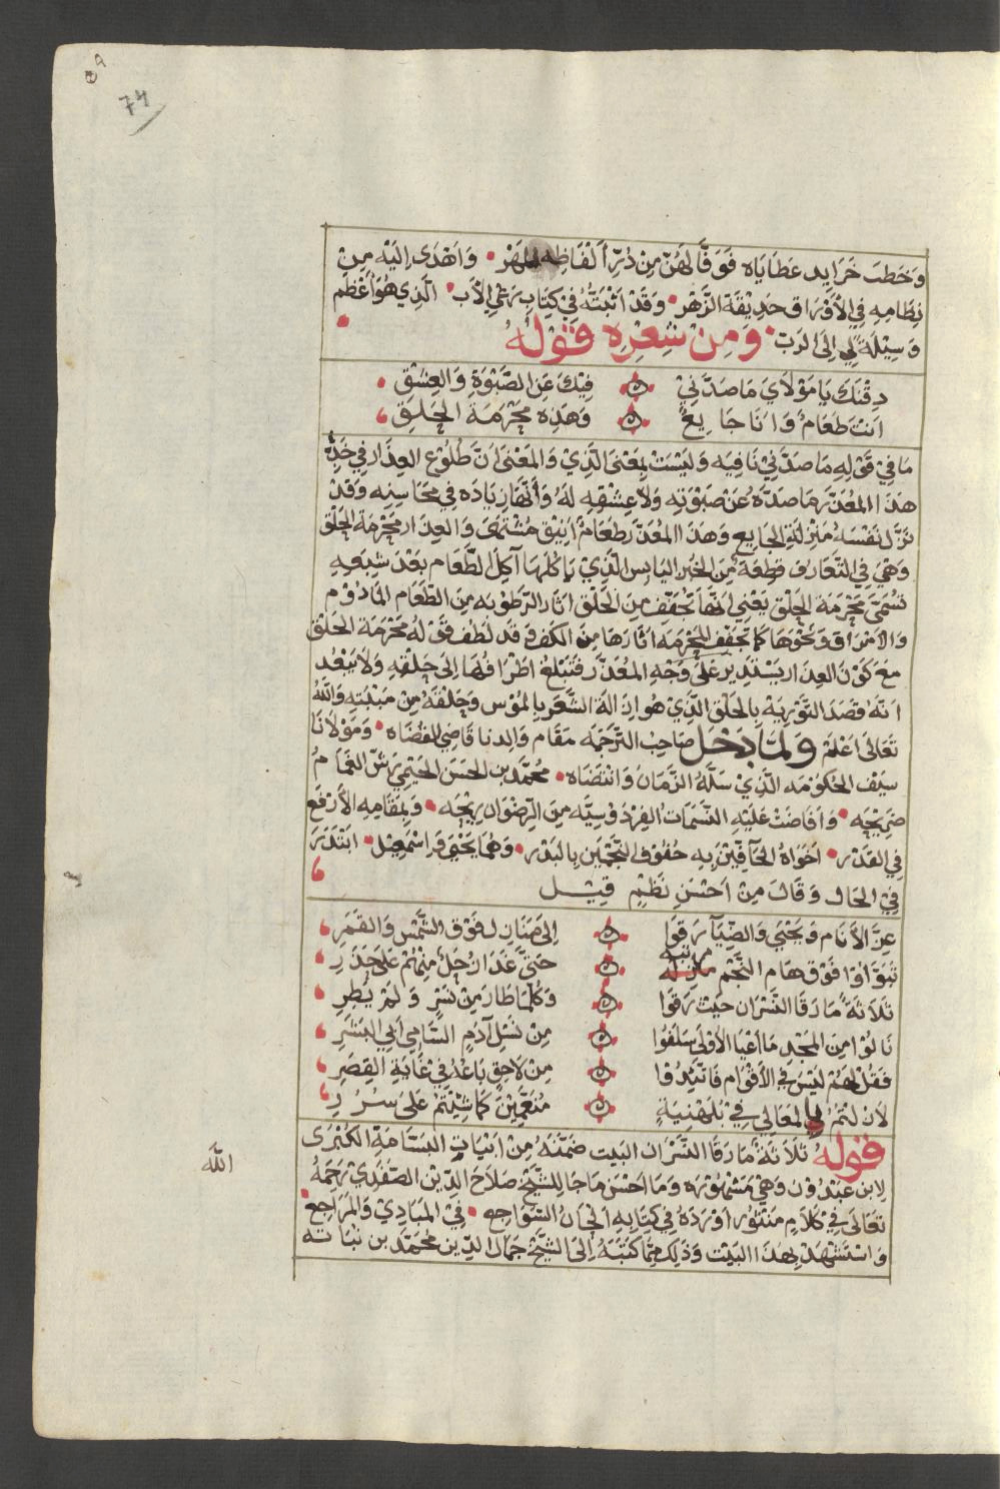 74
وَخَطَبَ خَرَايِد عَطَايَاه فَوَفَّا لَهُنّ مِنْ دُرَرِ أَلْفَاظِهِ المَهْر • وَاَهْدَى اِلَيْهِ مِن
نِظَامِهِ فِي الأَوْرَاق حَدِيقَة الزَّهْر • وَقَدْ اَثْبَتُّهُ فِي كِتَابِ الأَب • الَّذِي هُوَ اَعْظَم
وَسِيْلَةً لِي اِلَى الرَب • وَمِنْ شِعْرِه قَوْلهُ
دِقْنَكَ يَا مَوْلَايَ مَا صَدَّنِيْ ۞ فِيْكَ عَنِ الصَّبْوَةِ وَالعِشْقِ
اَنْتَ طَعَامٌ وَاَنَا جَايِعٌ ۞ وَهَذِه مَحْرَمَة الحَلْقِ
مَا فِيْ قَوْلِهِ مَا صَدَّنِيْ نَافِيَه وَلَيْسَتْ بِمَعْنَى الَّذِيْ وَالمَعْنَى اَنَّ طُلُوْعَ العِذَار فِي خَدِّ
هذَا المُعَذَّر مَا صَدَّهُ عَنْ صَبْوَتِهِ وَلَا عِشْقِهِ لَهُ وَأَنَّهَا زِيَادَه فِي مَحَاسِنِهِ وَقَدْ
نَزَّلَ نَفْسَهُ مَنْزِلَةَ الجَايِعِ وَهَذَا المُعَذَّر طَعَامٌ اَنِيْق مُشْتَهَى وَالعِذَار مَحْرَمَة الحَلْق
وَهْيَ فِي التَّعَارُف قِطعَةٌ مِنَ الخُبْزِ اليَابِس الَّذِيْ يَاكُلهَا آكِلُ الطَّعَام بَعْدَ شِبَعِهِ
تُسَمَّى مَحْرَمَة الحَلْق يَعْنِي اَنَّهَا تُجَفِّف مِنَ الحَلْق اَثَار الرَّطُوْبه مِنَ الطَّعَام المَادُوْم
وَالاَمْرَاق وَنَحْوهَا كَمَا تُجَفِّف المَحْرَمَه اَثَارهَا مِنَ الكَفّ وَقَدْ لَطُفَ قَوْلهُ مَحْرَمَة الحَلْق
مَعَ كَوْنِ العِذَار يَسْتَدِير عَلَى وَجْهِ المُعَذَّر فَتَبْلغُ اَطْرَافُهَا اِلَى حَلْقِهِ وَلَا يَبْعُد
اَنَّهُ قَصَدَ التَّوْرِيَة بِالحَلْق الَّذِيْ هُوَ اِزَالَة الشَّعَر بِالمُوْس وَحَلْقَهُ مِنْ مَنْبَتِهِ وَاللهُ
تَعَالَى اَعْلَم وَلَمَّا دَخَلَ صَاحِبُ التَّرْجَمَه مَقَام وَالِدنَا قَاضِي القُضَاه • وَمَوْلَانَا
سَيْف الحُكُوْمَه الَّذِيْ سَلَّهُ الزَّمَانُ وَانْتَضَاه • مُحَمَّد بن الحَسَن الحَيْمِيّ رَشَّ الغَمَامُ
ضَرِيْحَه • وَاَفَاضَتْ عَلَيْهِ النَّسَمَات الفِرْدَوْسِيَّه مِنَ الرِّضْوَان رِيْحَه • وَبِمَقَامِهِ الأَرْفَع
فِي القَدْر • اَخَوَاهُ الحَآفِّيْنَ بِهِ حُفُوْف النَّجْمَيْن بِالبَدْر • وَهُمَا يَحْيَى وَاِسْمَعِيْل • ابْتَدَرَ
فِي الحَال وَقَالَ مِنْ اَحْسَنِ نَظْمٍ قِيْل
عِزّ الأَنَام وَيَحْيَى وَالضِّيَآ رَقَوا ۞ اِلَى مَنَازِل فَوْقَ الشَّمْس وَالقَمَرِ
تَبَوَّأوْا فَوْقَ هَام النَّجْم مرتبة ۞ حَتَّى غَدَا زُحَلٌ مِنْهُم عَلَى حَذَرِ
ثَلَاثَةٌ مَا رَقَا النَّسْرَان حَيْثُ رَقَوا ۞ وَكُلَّمَا طَارَ مِنْ نَسْرٍ وَلَمْ يَطِرِ
نَالُوْا مِنَ المَجْدِ مَا اَعْيَا الأُوْلَى سَلَفُوْا ۞ مِنْ نَسْلِ آدَمٍ السَّامِيْ اَبِي البَشَرِ
فَقُلْ لِمَنْ لَيْسَ فِي الأَقْوَامِ فَاتَّئِدُوْا ۞ مِنْ لَاحِقٍ بَاعُهُ فِيْ غَايَةِ القِصَرِ
لَازِلْتُمُ يا لمَعَالِي فِيْ بُلَهْنِيَةٍ ۞ مُنَعَّمِيْنَ كَمَا شِئْتُمْ عَلَى سُرُرِ
قوله ثَلَاثَةٌ مَا رَقَا النَّسْرَان البَيت ضَمَّنَهُ مِنْ اَبْيَاتِ البَسَّامَةِ الكُبْرَى
لِابن عَبْدُوْن وَهْيَ مَشْهُوْرَه وَمَا اَحْسَنَ مَا جَا لِلشَّيْخ صَلَاح الدِّيْن الصَّفَدِيْ رَحِمَهُ
الله
تَعَالَى فِيْ كَلَامٍ مَنْثُوْرٍ اَوْرَدَهُ فِيْ كِتَابِهِ اَلْحَانُ السَّوَاجِعِ • فِيْ المَبَادِيْ وَالمَرَاجِع •
وَاسْتَشْهَدَ بِهذَا البَيْت وَذَلِكَ مِمَّا كَتَبَهُ اِلَى الشَّيْخ جَمَال الدِّيْن مُحَمَّد بن نُبَاتَه